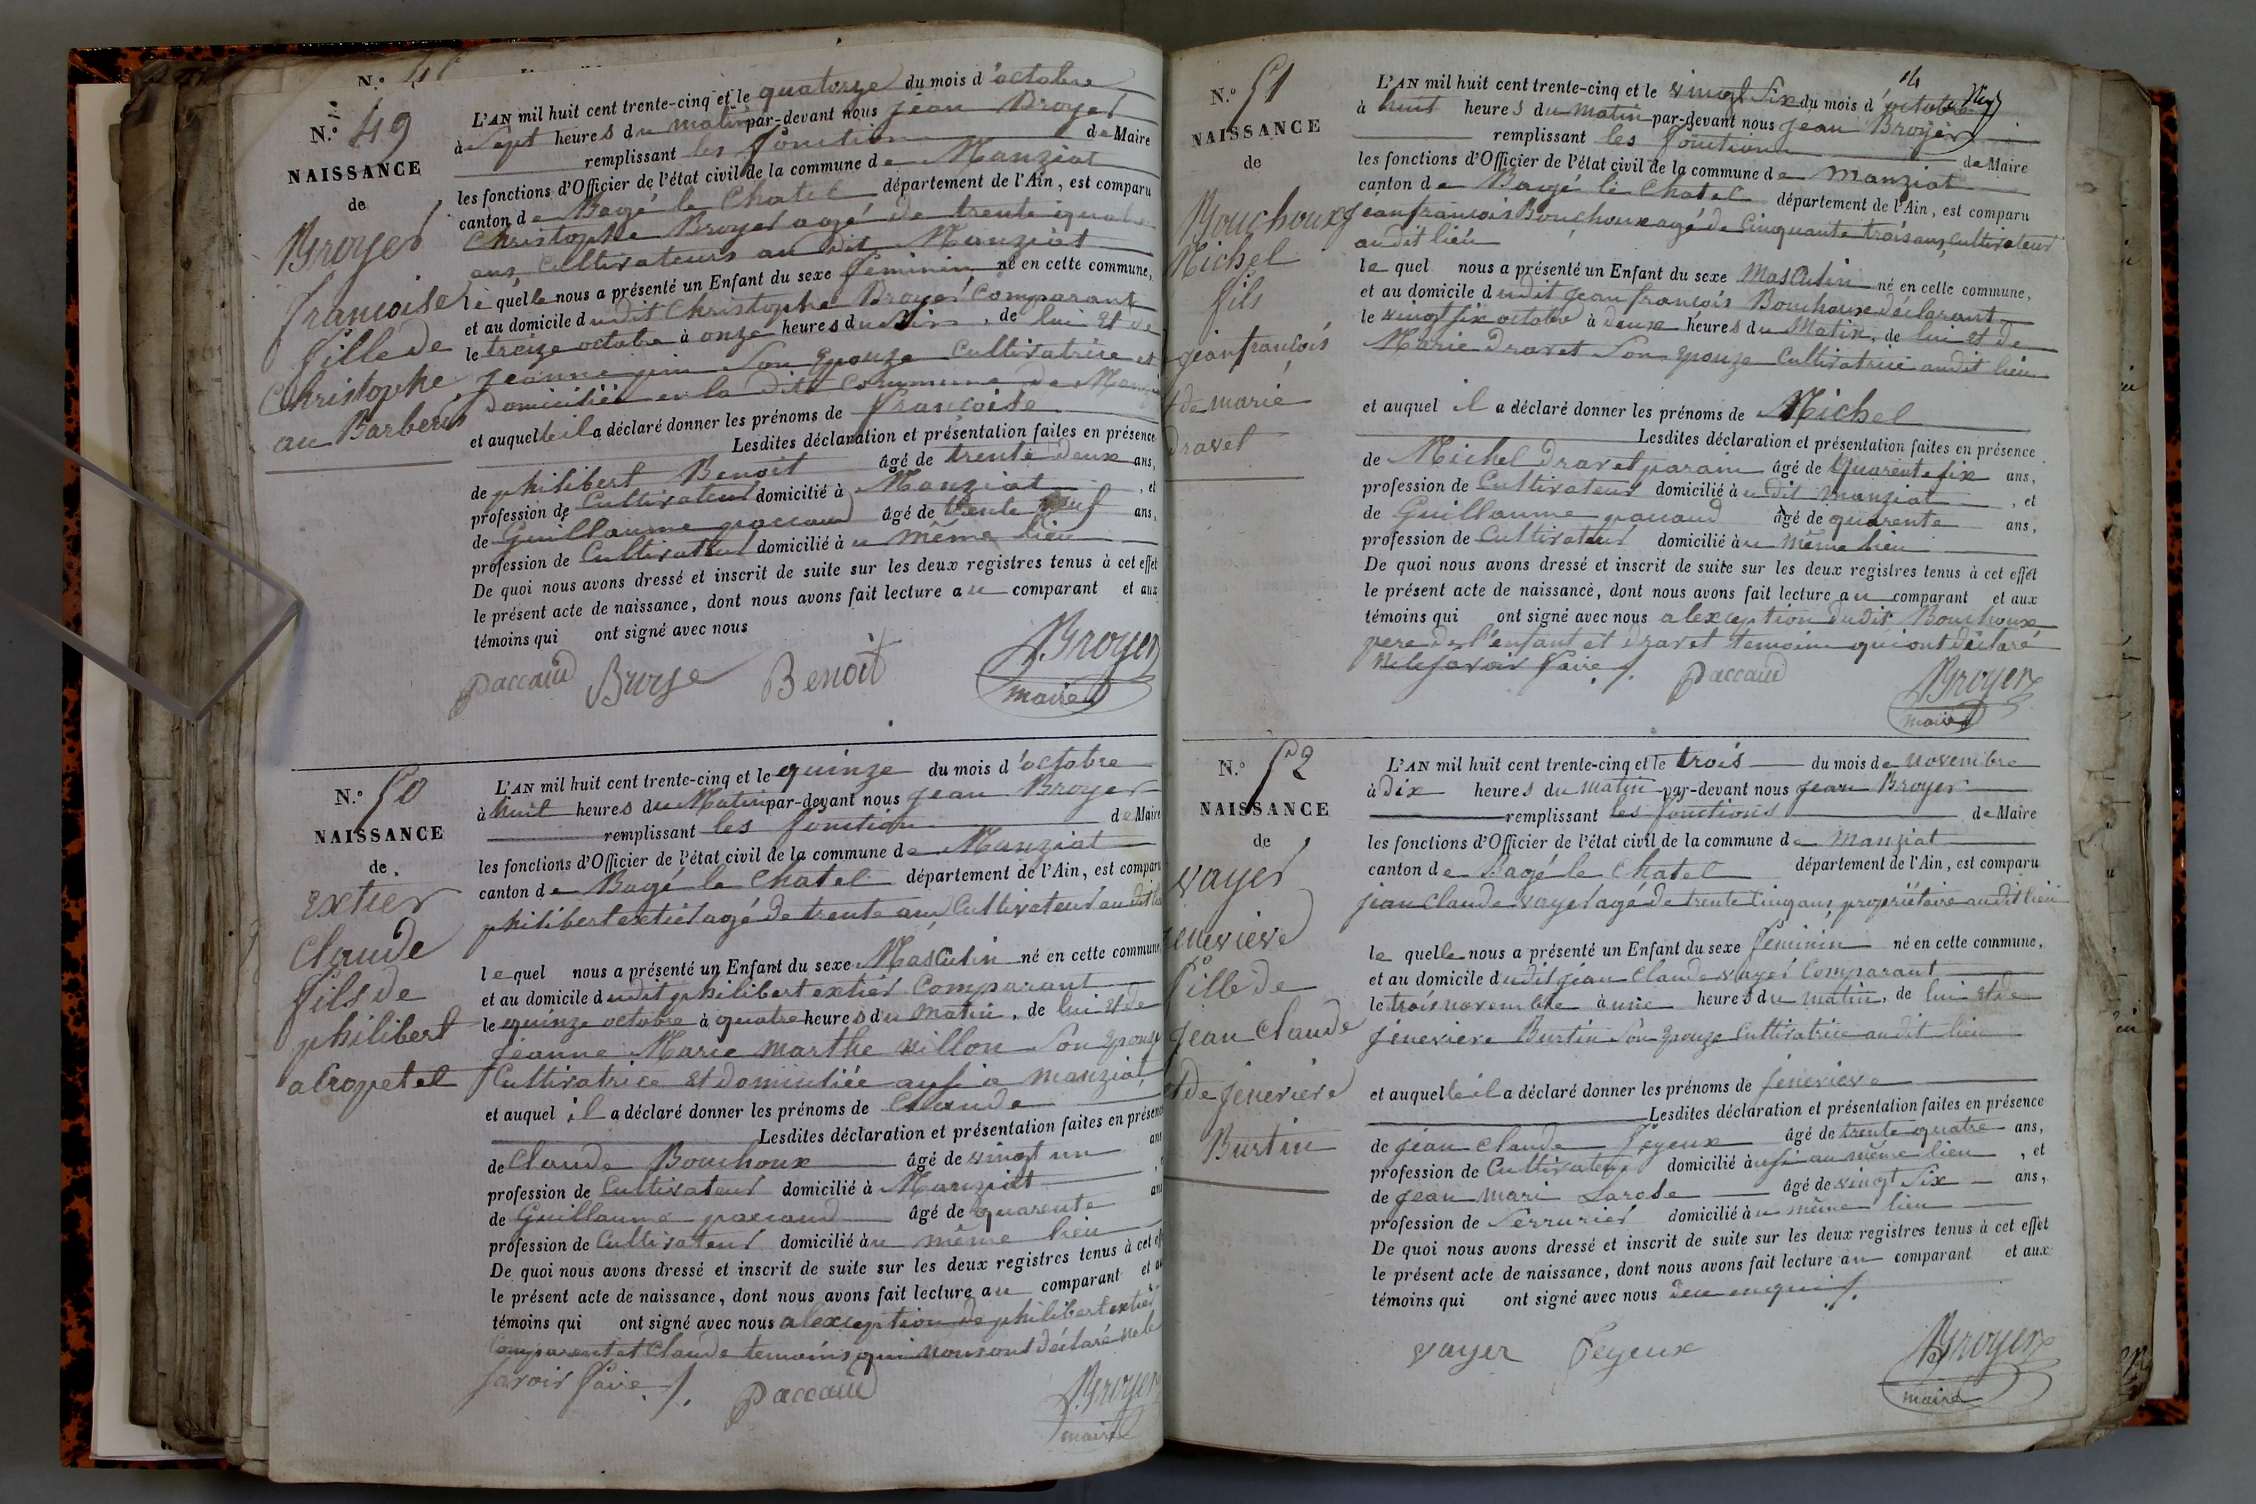 N.° 49
NAISSANCE
de
Broyer
françoise
fille de
Christophe
au Barberis
L'AN mil huit cent trente-cinq et le quatorze du mois d'octobre
à Sept heures du matin par-devant nous jean Broyer
remplissant les fonction de Maire
les fonctions d'Officier de l'état civil de la commune de Manziat
canton de Bagé le Chatel département de l'Ain, est comparu
Christophe Broyer agé de trente quatre
ans, Cultivateurs au dit Manziat
le quelle nous a présenté un Enfant du sexe féminin né en cette commune,
et au domicile dudit Christophe Broyer Comparant
le treize octobre à onze heures du Soir, de lui et de
jeanne Son Epouze Cultivatrice et
domiciliée en la dite Commune de
et auquelle il a déclaré donner les prénoms de françoise
Lesdites déclaration et présentation faites en présence
de philibert Benoit âgé de trente deux ans,
profession de Cultivateur domicilié à Manziat, et
de Guillaume paccaud âgé de trente neuf ans,
profession de Cultivateur domicilié au même lieu
De quoi nous avons dressé et inscrit de suite sur les deux registres tenus à cet effet
le présent acte de naissance, dont nous avons fait lecture au comparant et aux
témoins qui ont signé avec nous
paccaud Broye Benoit J. Broyer
maire
N.° 50
NAISSANCE
de
extier
Claude
fils de
philibert
a Cropetel
L'AN mil huit cent trente-cinq et le quinze du mois d'octobre
à huit heures du Matin par-devant nous jean Broyer
remplissant les fonction de Maire
les fonctions d'Officier de l'état civil de la commune de Manziat
canton de Bagé le Chatel département de l'Ain, est comparu
philibert extier agé de trente ans Cultivateur au dit lieu
le quel nous a présenté un Enfant du sexe Masculin né en cette commune
et au domicile dudit philibert extier Comparant
le quinze octobre à quatre heures du matin, de lui et de
jeanne Marie marthe Nillon Son Epouze
Cultivatrice et domiciliée aussi a manziat
et auquel il a déclaré donner les prénoms de Claude
Lesdites déclaration et présentation faites en présence
de Claude Bouchoux âgé de vingt un ans
profession de Cultivateur domicilié à Manziat
de Guillaume paccaud âgé de quarente ans
profession de Cultivateur domicilié au même lieu
De quoi nous avons dressé et inscrit de suite sur les deux registres tenus à cet
le présent acte de naissance, dont nous avons fait lecture au comparant et
témoins qui ont signé avec nous a lexception de philibert extier
Comparant et Claude temoins qui nous ont déclaré ne le
savoir faire ./. paccaud J. Broyer
maire
14
N.° 51
NAISSANCE
de
Bouchoux
Michel
fils
jean françois
et de marie
dravet
L'AN mil huit cent trente-cinq et le vingt six du mois d'octobre
à huit heures du matin par-devant nous jean Broyer
remplissant les fonction de Maire
les fonctions d'Officier de l'état civil de la commune de manziat
canton de Bagé le Chatel département de l'Ain, est comparu
jean françois Bouchoux agé de Cinquante trois ans, Cultivateur
au dit lieu
le quel nous a présenté un Enfant du sexe Masculin né en cette commune,
et au domicile dudit jean françois Bouchoux déclarant
le vingt six octobre à deux heures du Matin, de lui et de
Marie dravet Son Epouze Cultivatrice au dit lieu
et auquel il a déclaré donner les prénoms de Michel
Lesdites déclaration et présentation faites en présence
de Michel dravet parain âgé de quarente six ans,
profession de Cultivateur domicilié au dit manziat, et
de Guillaume paccaud âgé de quarente ans,
profession de Cultivateur domicilié au même lieu
De quoi nous avons dressé et inscrit de suite sur les deux registres tenus à cet effet
le présent acte de naissance, dont nous avons fait lecture au comparant et aux
témoins qui ont signé avec nous a lexception dudit Bouchoux
pere de l'enfant et dravet temoin qui ont déclaré
ne le savoir faire ./. paccaud J. Broyer
maire
N.° 52
NAISSANCE
de
vayer
jenevieve
fille de
jean Claude
et de jenevieve
Burtin
L'AN mil huit cent trente-cinq et le trois du mois de novembre
à dix heures du matin par-devant nous jean Broyer
remplissant les fonctions de Maire
les fonctions d'Officier de l'état civil de la commune de manziat
canton de Bagé le Chatel département de l'Ain, est comparu
jean Claude vayer agé de trente Cinq ans propriétaire au dit lieu
le quelle nous a présenté un Enfant du sexe féminin né en cette commune,
et au domicile dudit jean Claude vayer Comparant
le trois novembre à une heures du matin, de lui et de
jenevieve Burtin Son Epouze Cultivatrice au dit lieu
et auquelle il a déclaré donner les prénoms de jenevieve
Lesdites déclaration et présentation faites en présence
de jean Claude feyeux âgé de trente quatre ans,
profession de Cultivateur domicilié aussi au même lieu, et
de jean mari Larose âgé de vingt Six ans,
profession de Serrurier domicilié au même lieu
De quoi nous avons dressé et inscrit de suite sur les deux registres tenus à cet effet
le présent acte de naissance, dont nous avons fait lecture au comparant et aux
témoins qui ont signé avec nous
vayer feyeux J. Broyer
maire